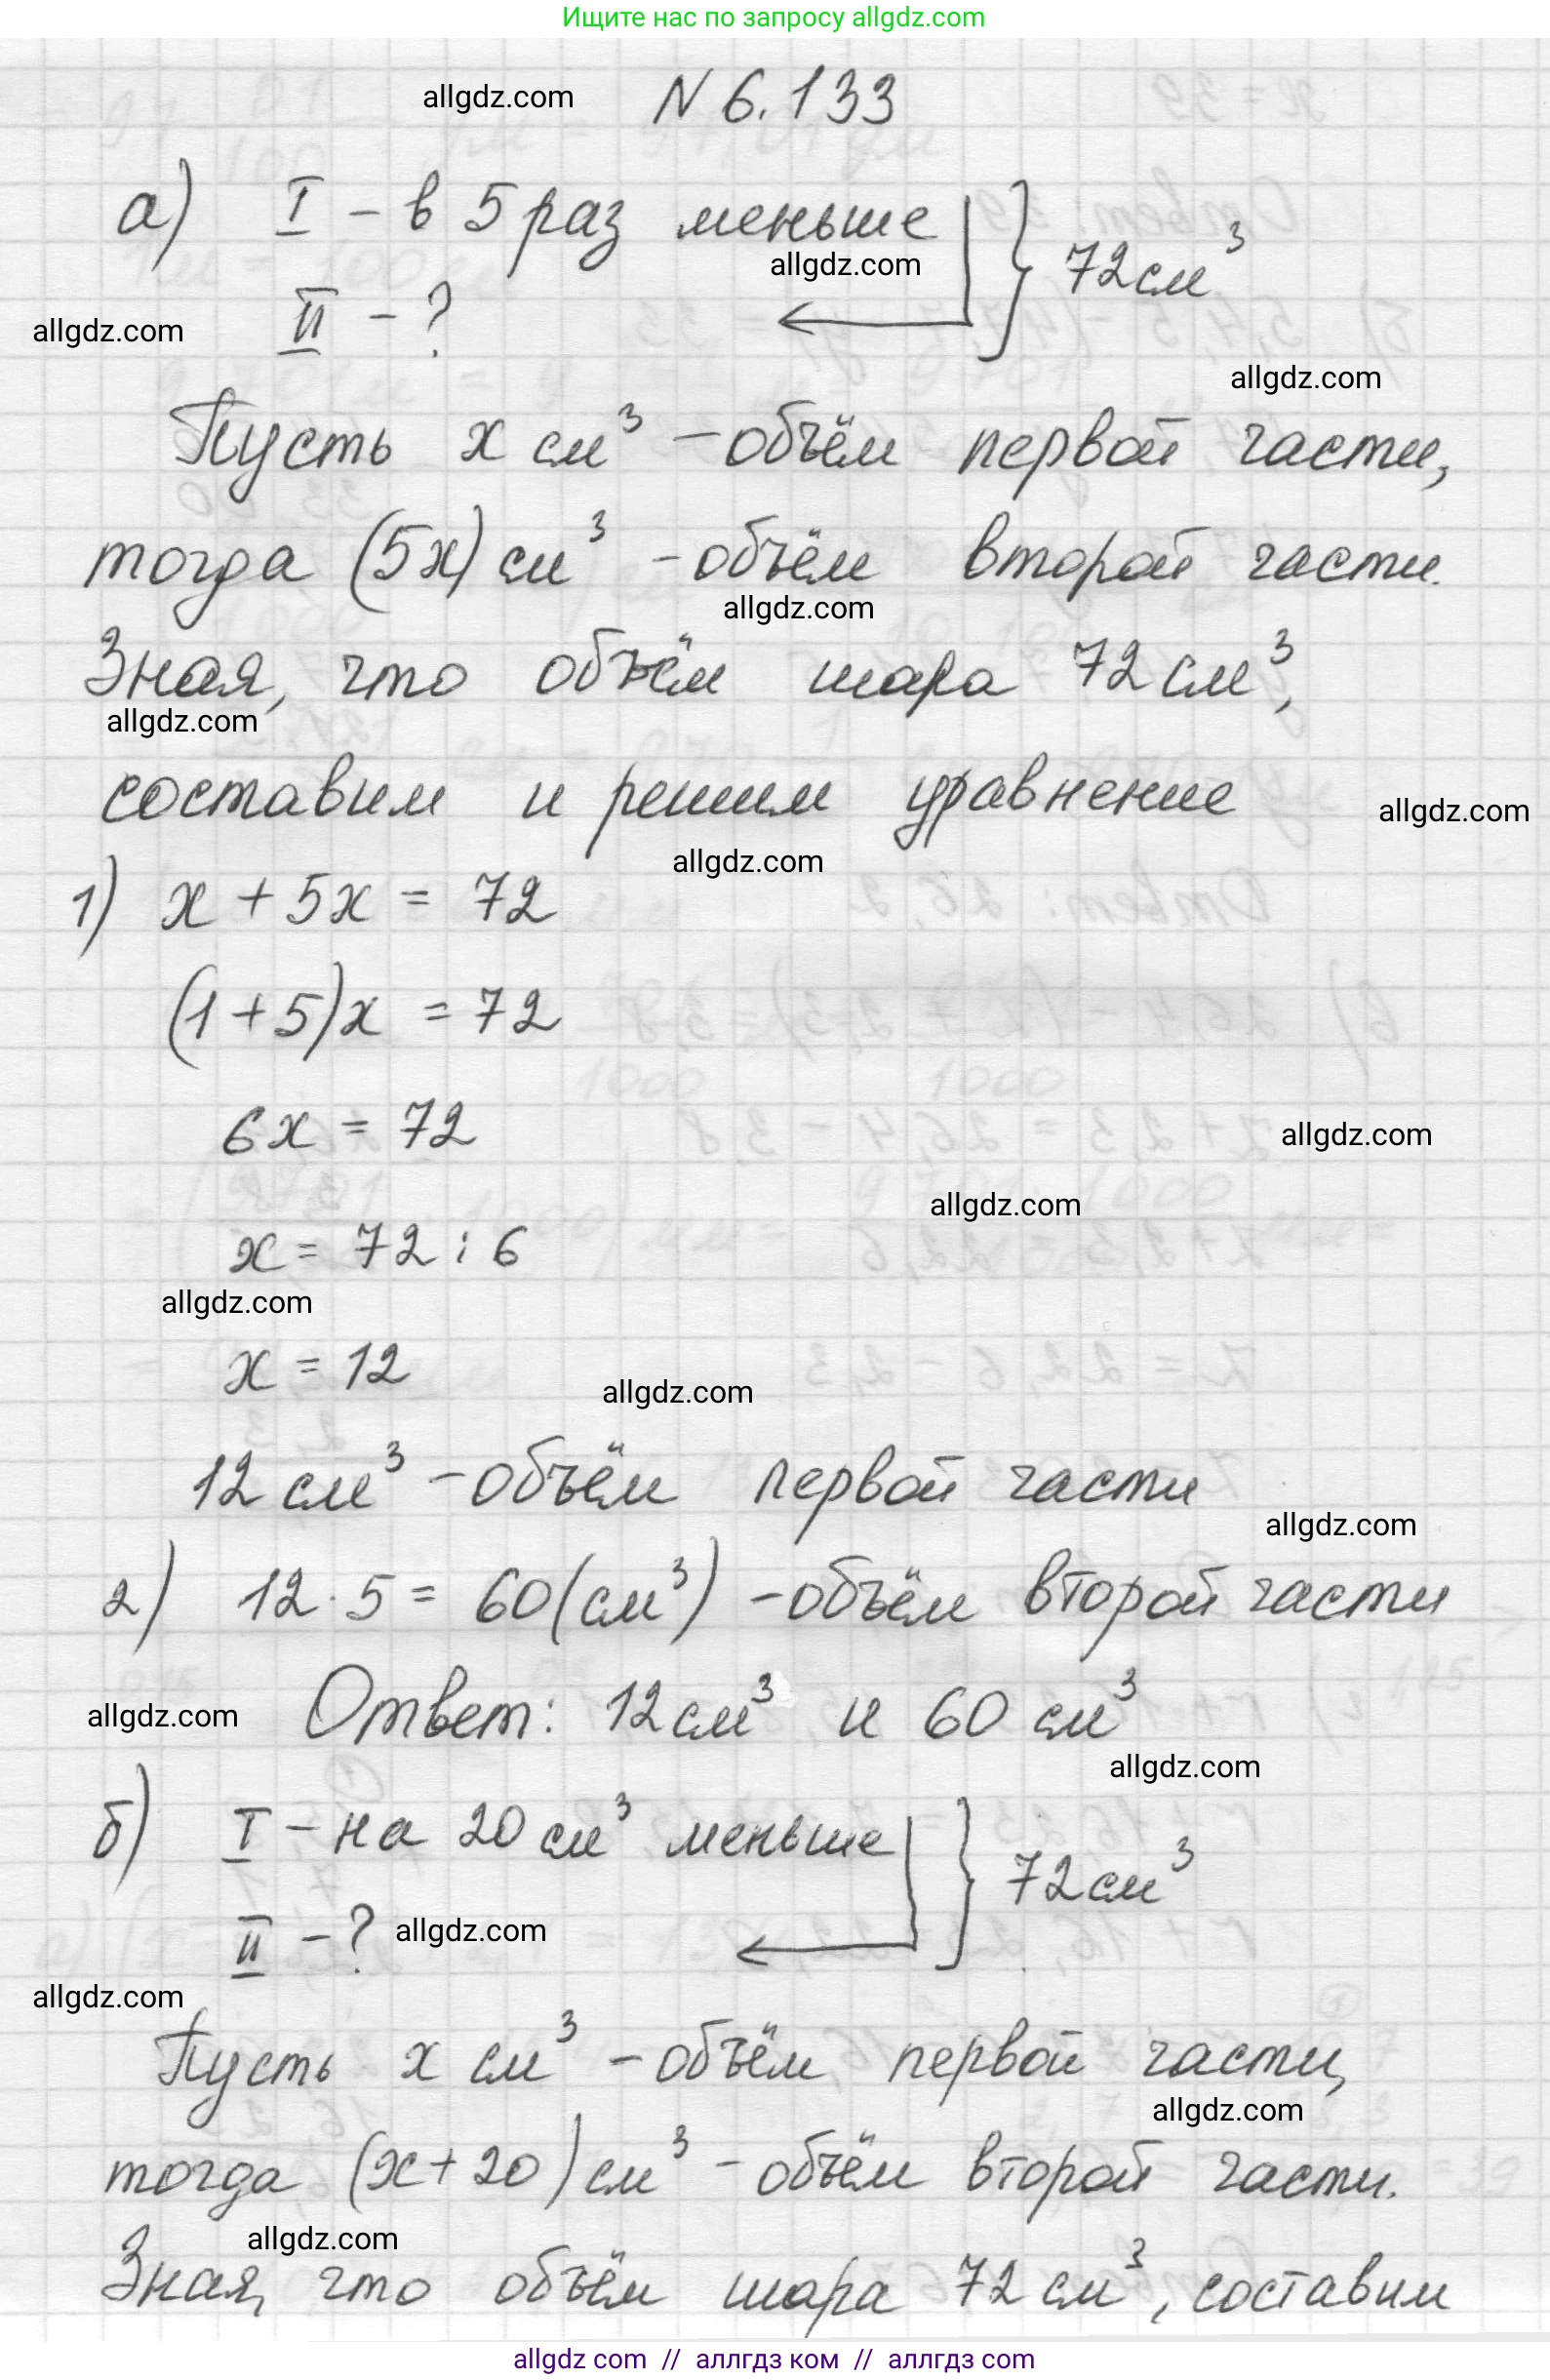 Ищите нас по запросу allgdz.com
allgdz.com
N 6.133
а) I – в 5 раз меньше } 72 см³
allgdz.com
II – ?
allgdz.com
allgdz.com
Пусть x см³ – объём первой части,
тогда (5x) см³ – объём второй части.
allgdz.com
Зная, что объём шара 72 см³,
allgdz.com
составим и решим уравнение
allgdz.com
allgdz.com
1) x + 5x = 72
(1 + 5)x = 72
6x = 72
allgdz.com
allgdz.com
x = 72 : 6
allgdz.com
x = 12
allgdz.com
12 см³ – объём первой части
allgdz.com
2) 12 · 5 = 60 (см³) – объём второй части
allgdz.com
Ответ: 12 см³ и 60 см³
allgdz.com
б) I – на 20 см³ меньше } 72 см³
II – ?
allgdz.com
allgdz.com
Пусть x см³ – объём первой части,
allgdz.com
тогда (x + 20) см³ – объём второй части.
allgdz.com
Зная, что объём шара 72 см³, составим
allgdz com // аллгдз ком // аллгдз com